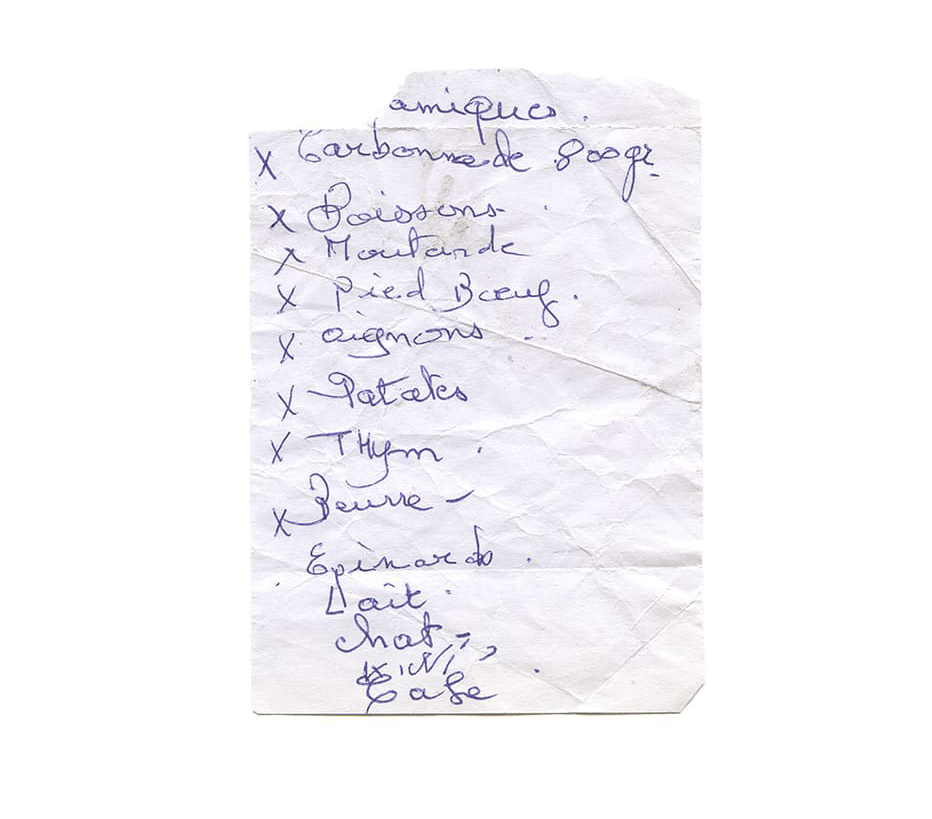 amiques.
x Carbonnade 800gr.
x Poissons.
x Moutarde
x Pied Boeuf.
x oignons
x Patates
x THym.
x Beurre -
Epinards.
Lait.
chat
Cafe